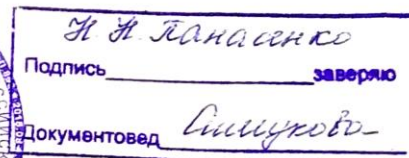 Н Н. Панасенко
Подпись заверяю
Документовед